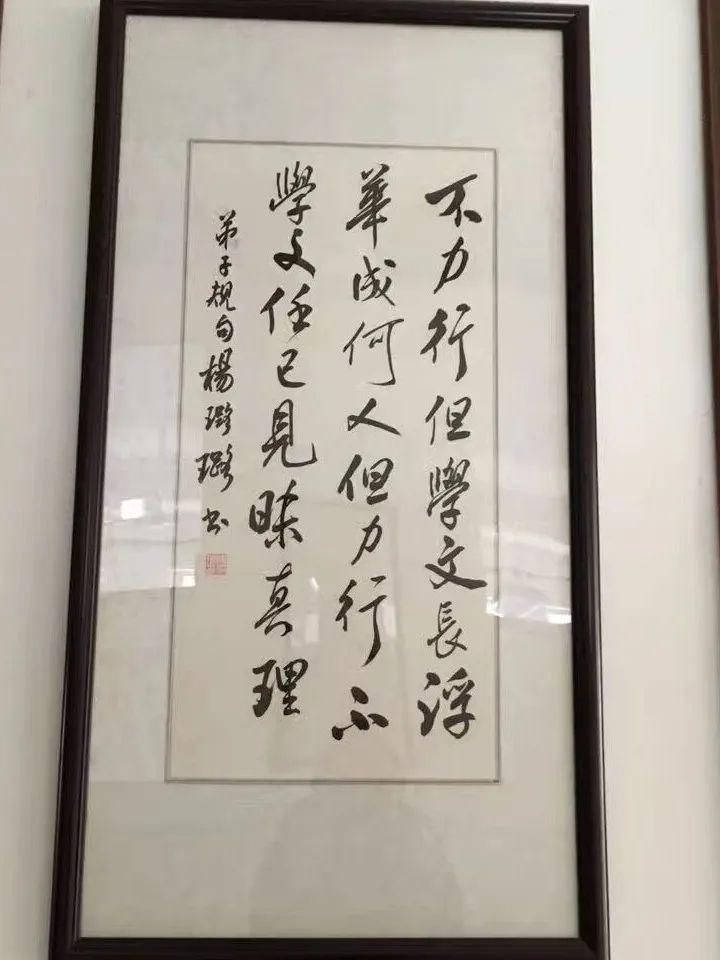 不力行但學文長浮
華成何人但力行不
學文任己見昧真理
弟子規句楊璐璐书